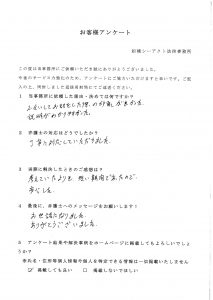 お客様アンケート
虹橋シーアクト法律事務所
この度は当事務所にご依頼いただき誠にありがとうございました。
今後のサービス力強化のため、アンケートにご協力いただけますと幸いです。ご記
入の上、同封しました返信用封筒にてご返送ください。
1 当事務所に依頼した理由・決め手は何ですか?
説明がわかりやすかった
2 弁護士の対応はどうでしたか?
丁寧に対応していただきました。
3 実際に解決したときのご感想は?
考えていたよりも 短い期間できまったので、
安心した
4 最後に、弁護士へのメッセージをお願いします!
お世話になりました。
ありがとうございました。
5 アンケート結果や解決事例をホームページに掲載してもよろしいでしょう
か?
※氏名・住所等個人情報や個人を特定できる情報は一切掲載いたしません
掲載しても良い 掲載しないでほしい